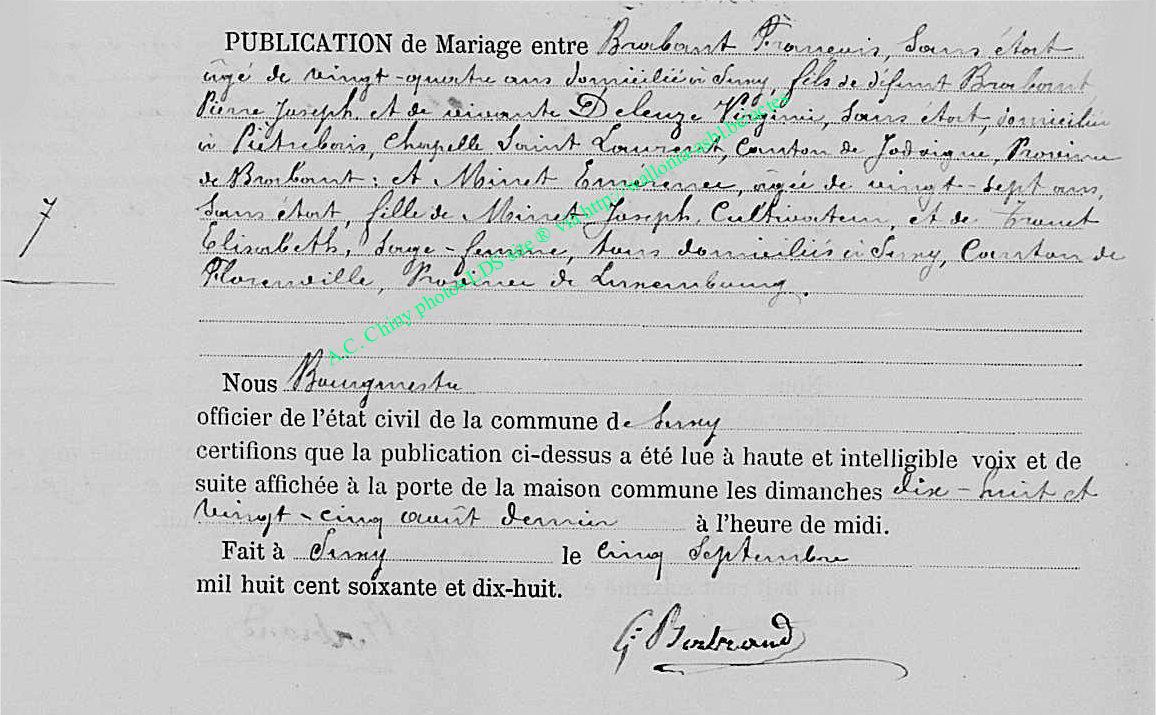 PUBLICATION de Mariage entre Brabant François, sans état
âgé de vingt-quatre ans domicilié à Suxy, fils de défunt Brabant
Pierre Joseph et de vivante Deleuze Virginie, sans état, domiciliée
à Piètrebais, Chapelle Saint Laurent, Canton de Jodoigne, Province
de Brabant; et Minet Emérence, âgée de vingt-sept ans,
7
sans état, fille de Minet Joseph, Cultivateur, et de
Elisabeth, sage-femme, tous domiciliés à Suxy, Canton de
Florenville, Province de Luxembourg.
A.C. Chiny photos LDS site ® via http://wallonia-asbl.be/actes
Nous Bourgmestre
officier de l'état civil de la commune de Suxy
certifions que la publication ci-dessus a été lue à haute et intelligible voix et de
suite affichée à la porte de la maison commune les dimanches dix-huit et
vingt-cinq août dernier à l'heure de midi.
Fait à Suxy le cinq Septembre
mil huit cent soixante et dix-huit.
G. Bertrand